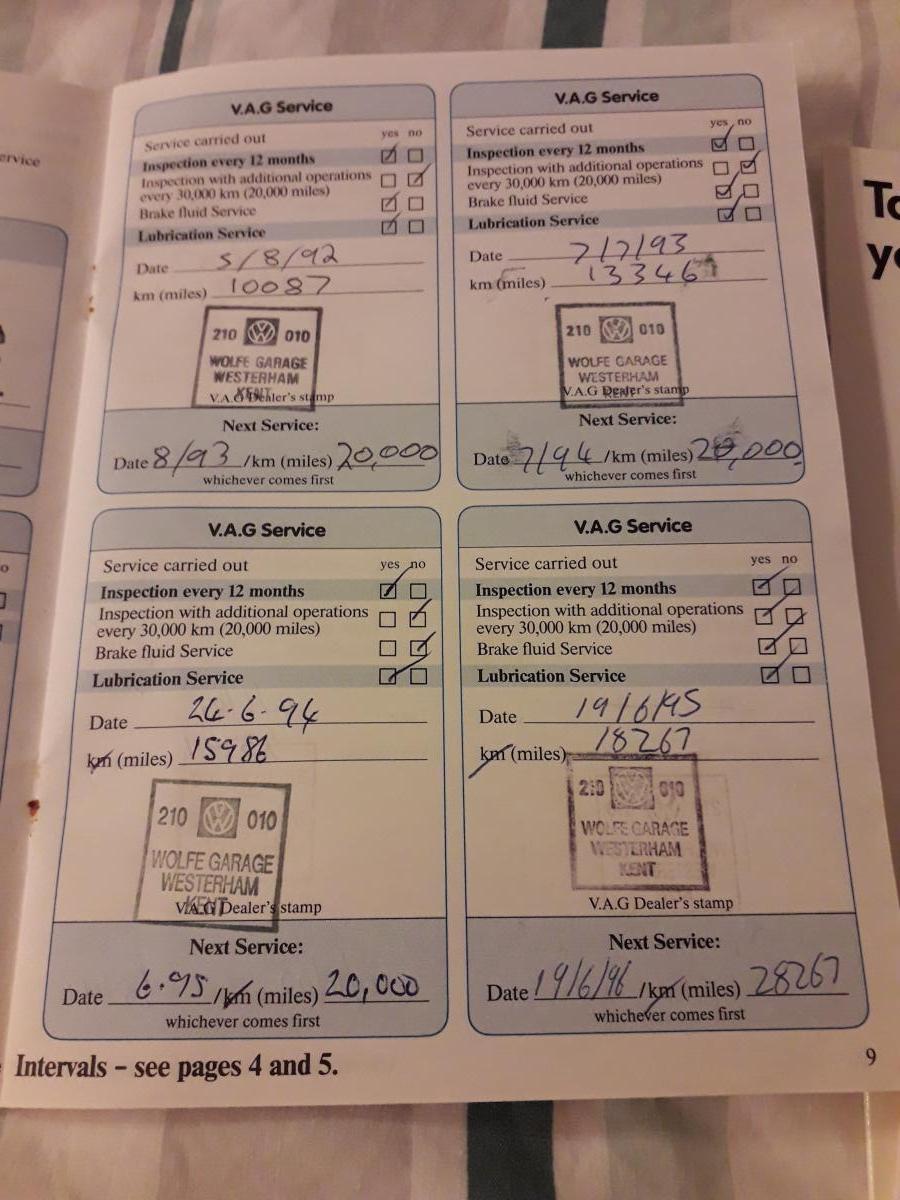 ervice
o
V.A.G Service
Service carried out yes no
Inspection every 12 months
Inspection with additional operations
every 30,000 km (20,000 miles)
Brake fluid Service
Lubrication Service
Date 5/8/92
km (miles) 10087
210 010
WOLFE GARAGE
WESTERHAM
KENT
V.A.G Dealer's stamp
Next Service:
Date 8/93 /km (miles) 20,000
whichever comes first
V.A.G Service
Service carried out yes no
Inspection every 12 months
Inspection with additional operations
every 30,000 km (20,000 miles)
Brake fluid Service
Lubrication Service
Date 7/7/93
km (miles) 13346
210 010
WOLFE GARAGE
WESTERHAM
KENT
V.A.G Dealer's stamp
Next Service:
Date 7/94 /km (miles) 20,000
whichever comes first
V.A.G Service
Service carried out yes no
Inspection every 12 months
Inspection with additional operations
every 30,000 km (20,000 miles)
Brake fluid Service
Lubrication Service
Date 24-6-94
km (miles) 15986
210 010
WOLFE GARAGE
WESTERHAM
KENT
V.A.G Dealer's stamp
Next Service:
Date 6.95 /km (miles) 20,000
whichever comes first
V.A.G Service
Service carried out yes no
Inspection every 12 months
Inspection with additional operations
every 30,000 km (20,000 miles)
Brake fluid Service
Lubrication Service
Date 19/6/95
km (miles) 18267
210 010
WOLFE GARAGE
WESTERHAM
KENT
V.A.G Dealer's stamp
Next Service:
Date 19/6/96 /km (miles) 28267
whichever comes first
Intervals – see pages 4 and 5.
9
To
yo